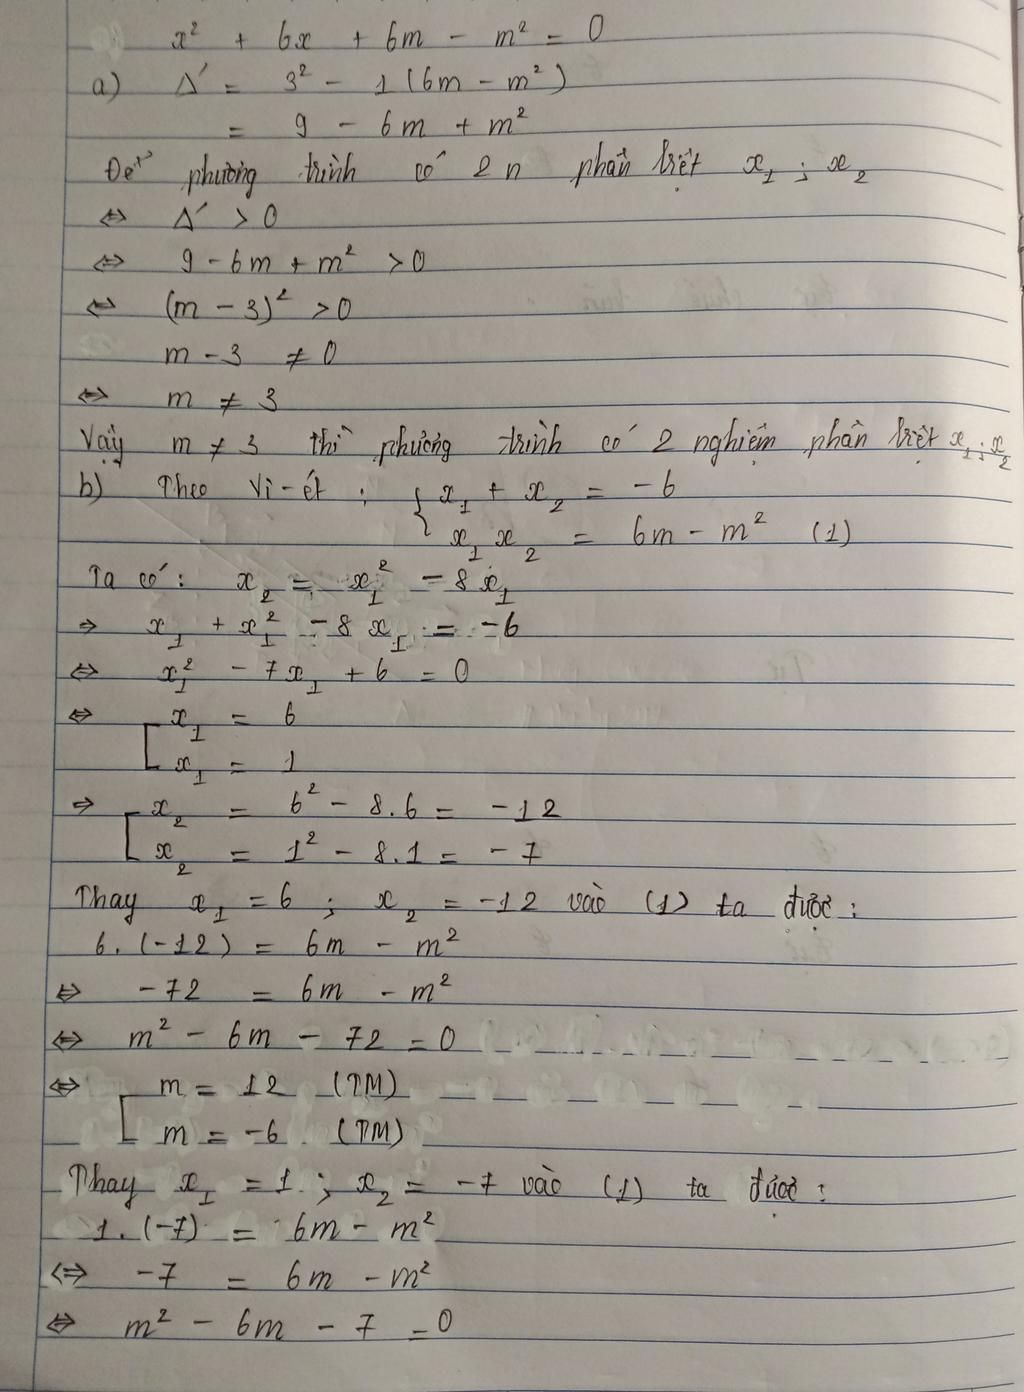 x² + 6x + 6m - m² = 0
a) Δ' = 3² - 1(6m - m²)
= 9 - 6m + m²
Để phương trình có 2 n phân biệt x₁ ; x₂
⇔ Δ' > 0
⇔ 9 - 6m + m² > 0
⇔ (m - 3)² > 0
m - 3 ≠ 0
⇔ m ≠ 3
Vậy m ≠ 3 thì phương trình có 2 nghiệm phân biệt x₁ ; x₂
b) Theo Vi-ét : { x₁ + x₂ = -6
x₁ x₂ = 6m - m² (1)
Ta có : x₂ = x₁² - 8x₁
⇒ x₁ + x₁² - 8x₁ = -6
⇔ x₁² - 7x₁ + 6 = 0
⇔ [ x₁ = 6
x₁ = 1
⇒ [ x₂ = 6² - 8.6 = -12
x₂ = 1² - 8.1 = -7
Thay x₁ = 6 ; x₂ = -12 vào (1) ta được :
6.(-12) = 6m - m²
⇔ -72 = 6m - m²
⇔ m² - 6m - 72 = 0
⇔ [ m = 12 (TM)
m = -6 (TM)
Thay x₁ = 1 ; x₂ = -7 vào (1) ta được :
1.(-7) = 6m - m²
⇔ -7 = 6m - m²
⇔ m² - 6m - 7 = 0